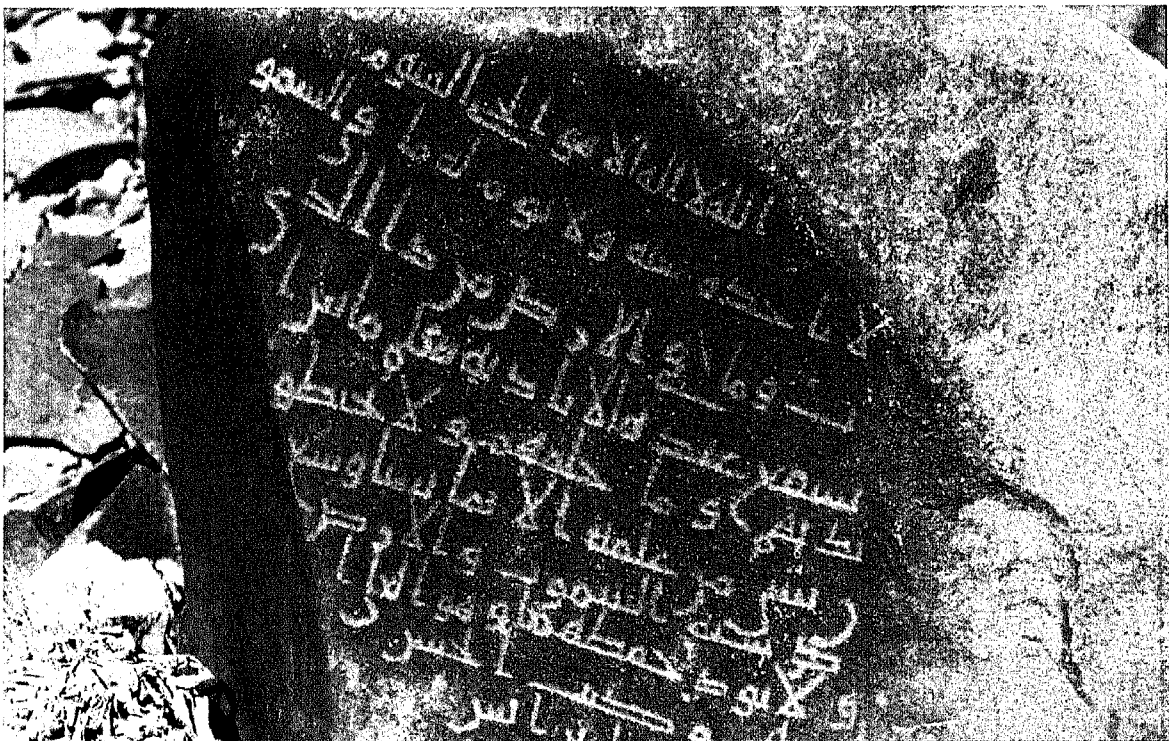 الله لا اله الا هو الحي القيوم
لا تاخذه سنة ولا نوم له ما في السمو
ت وما في الارض من ذا الذي
يشفع عنده الا باذنه يعلم ما بين ا
يديهم وما خلفهم ولا يحيطو
ن بشي من علمه الا بما شا وسع
كرسيه السموت والارض
ولا يوده حفظهما وهو العلي
وكتب الحسن